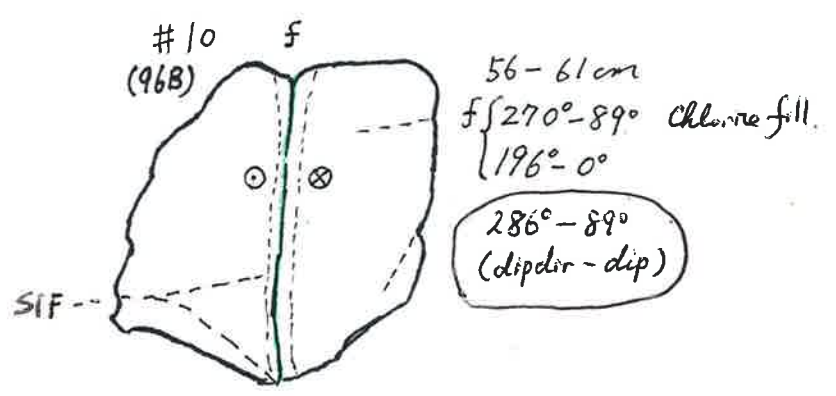 #10 f
(96B)
56-61cm
f { 270°-89° Chlorite fill.
196°-0°
286°-89°
(dipdir - dip)
SIF